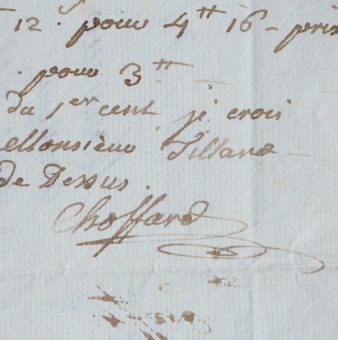 12 s. pour 4 tt 16 - prix
. pour 3 tt
du 1er cent je crois
Monsieur Tillard
de Dessus.
Choffard